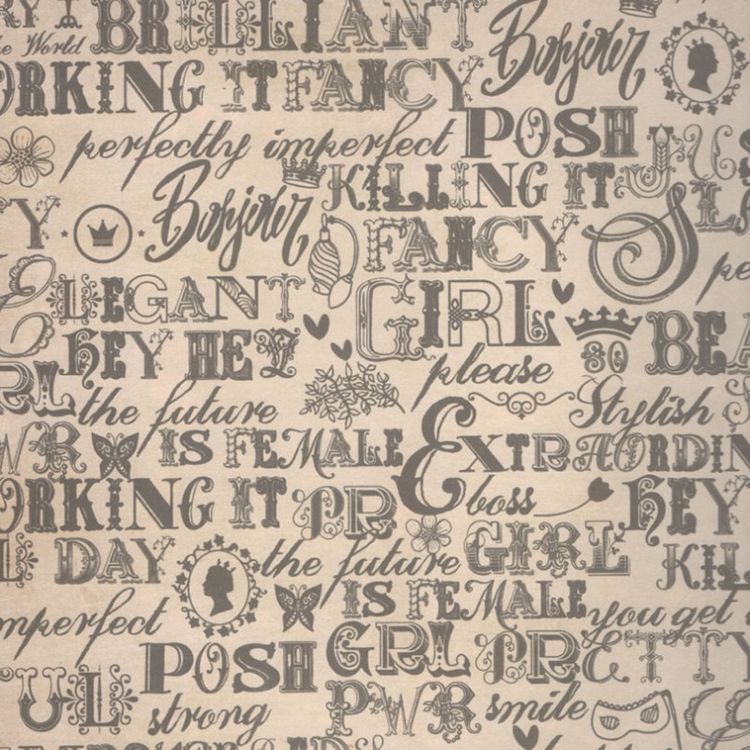 BRILLIANT
the World
Bonjour
ORKING IT FANCY
perfectly imperfect POSH
KILLING IT
Bonjour FANCY
ELEGANT GIRL
HEY HEY SO BEA
please
RL the future Stylish
PWR IS FEMALE EXTRAORDIN
ORKING IT boss HEY
L DAY the future GIRL KIL
IS FEMALE you get
mperfect
POSH GRL PRETTY
UL strong PWR smile